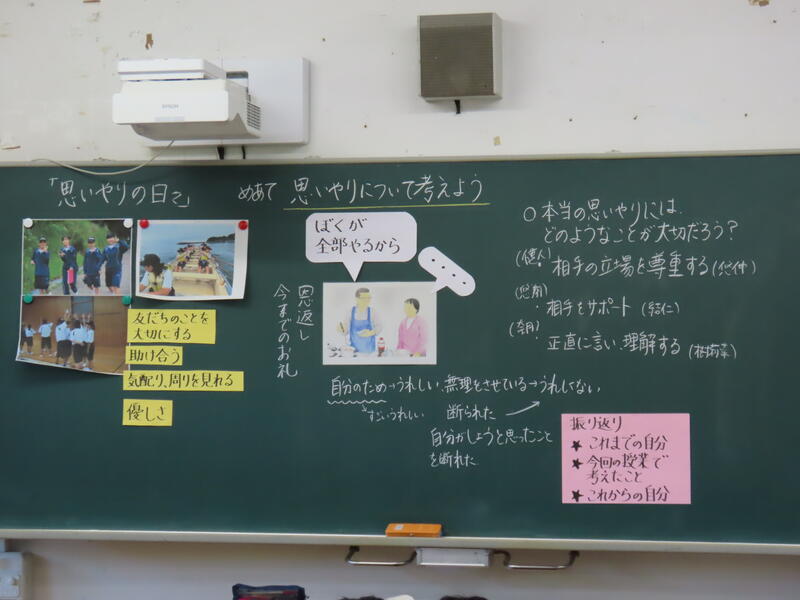 EPSON
「思いやりの日々」
めあて 思いやりについて考えよう
友だちのことを
大切にする
助け合う
気配り、周りを見れる
優しさ
ぼくが
全部やるから
・・・・
恩返し
今までのお礼
自分のため→うれしい、無理をさせている→うれしくない
すごいうれしい 断られた
自分がしようと思ったこと
を断れた
○本当の思いやりには、
どのようなことが大切だろう?
相手の立場を尊重する
・相手をサポート
・正直に言い、理解する
振り返り
★これまでの自分
★今回の授業で
考えたこと
★これからの自分